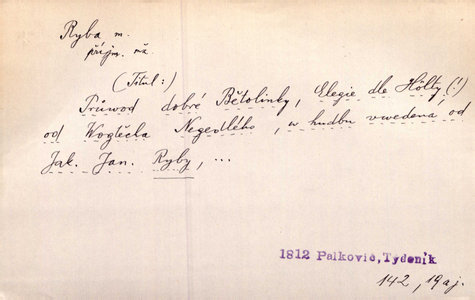 Ryba m.
příjm. mž.
(Titul:)
Průwod dobré Bětolinky, Elegie dle Hölty (!)
od Wogtěcha Negedlého, w hudbu vwedená od
Jak. Jan. Ryby, ...
1812 Palkovič, Tydeník
142, 19 aj.